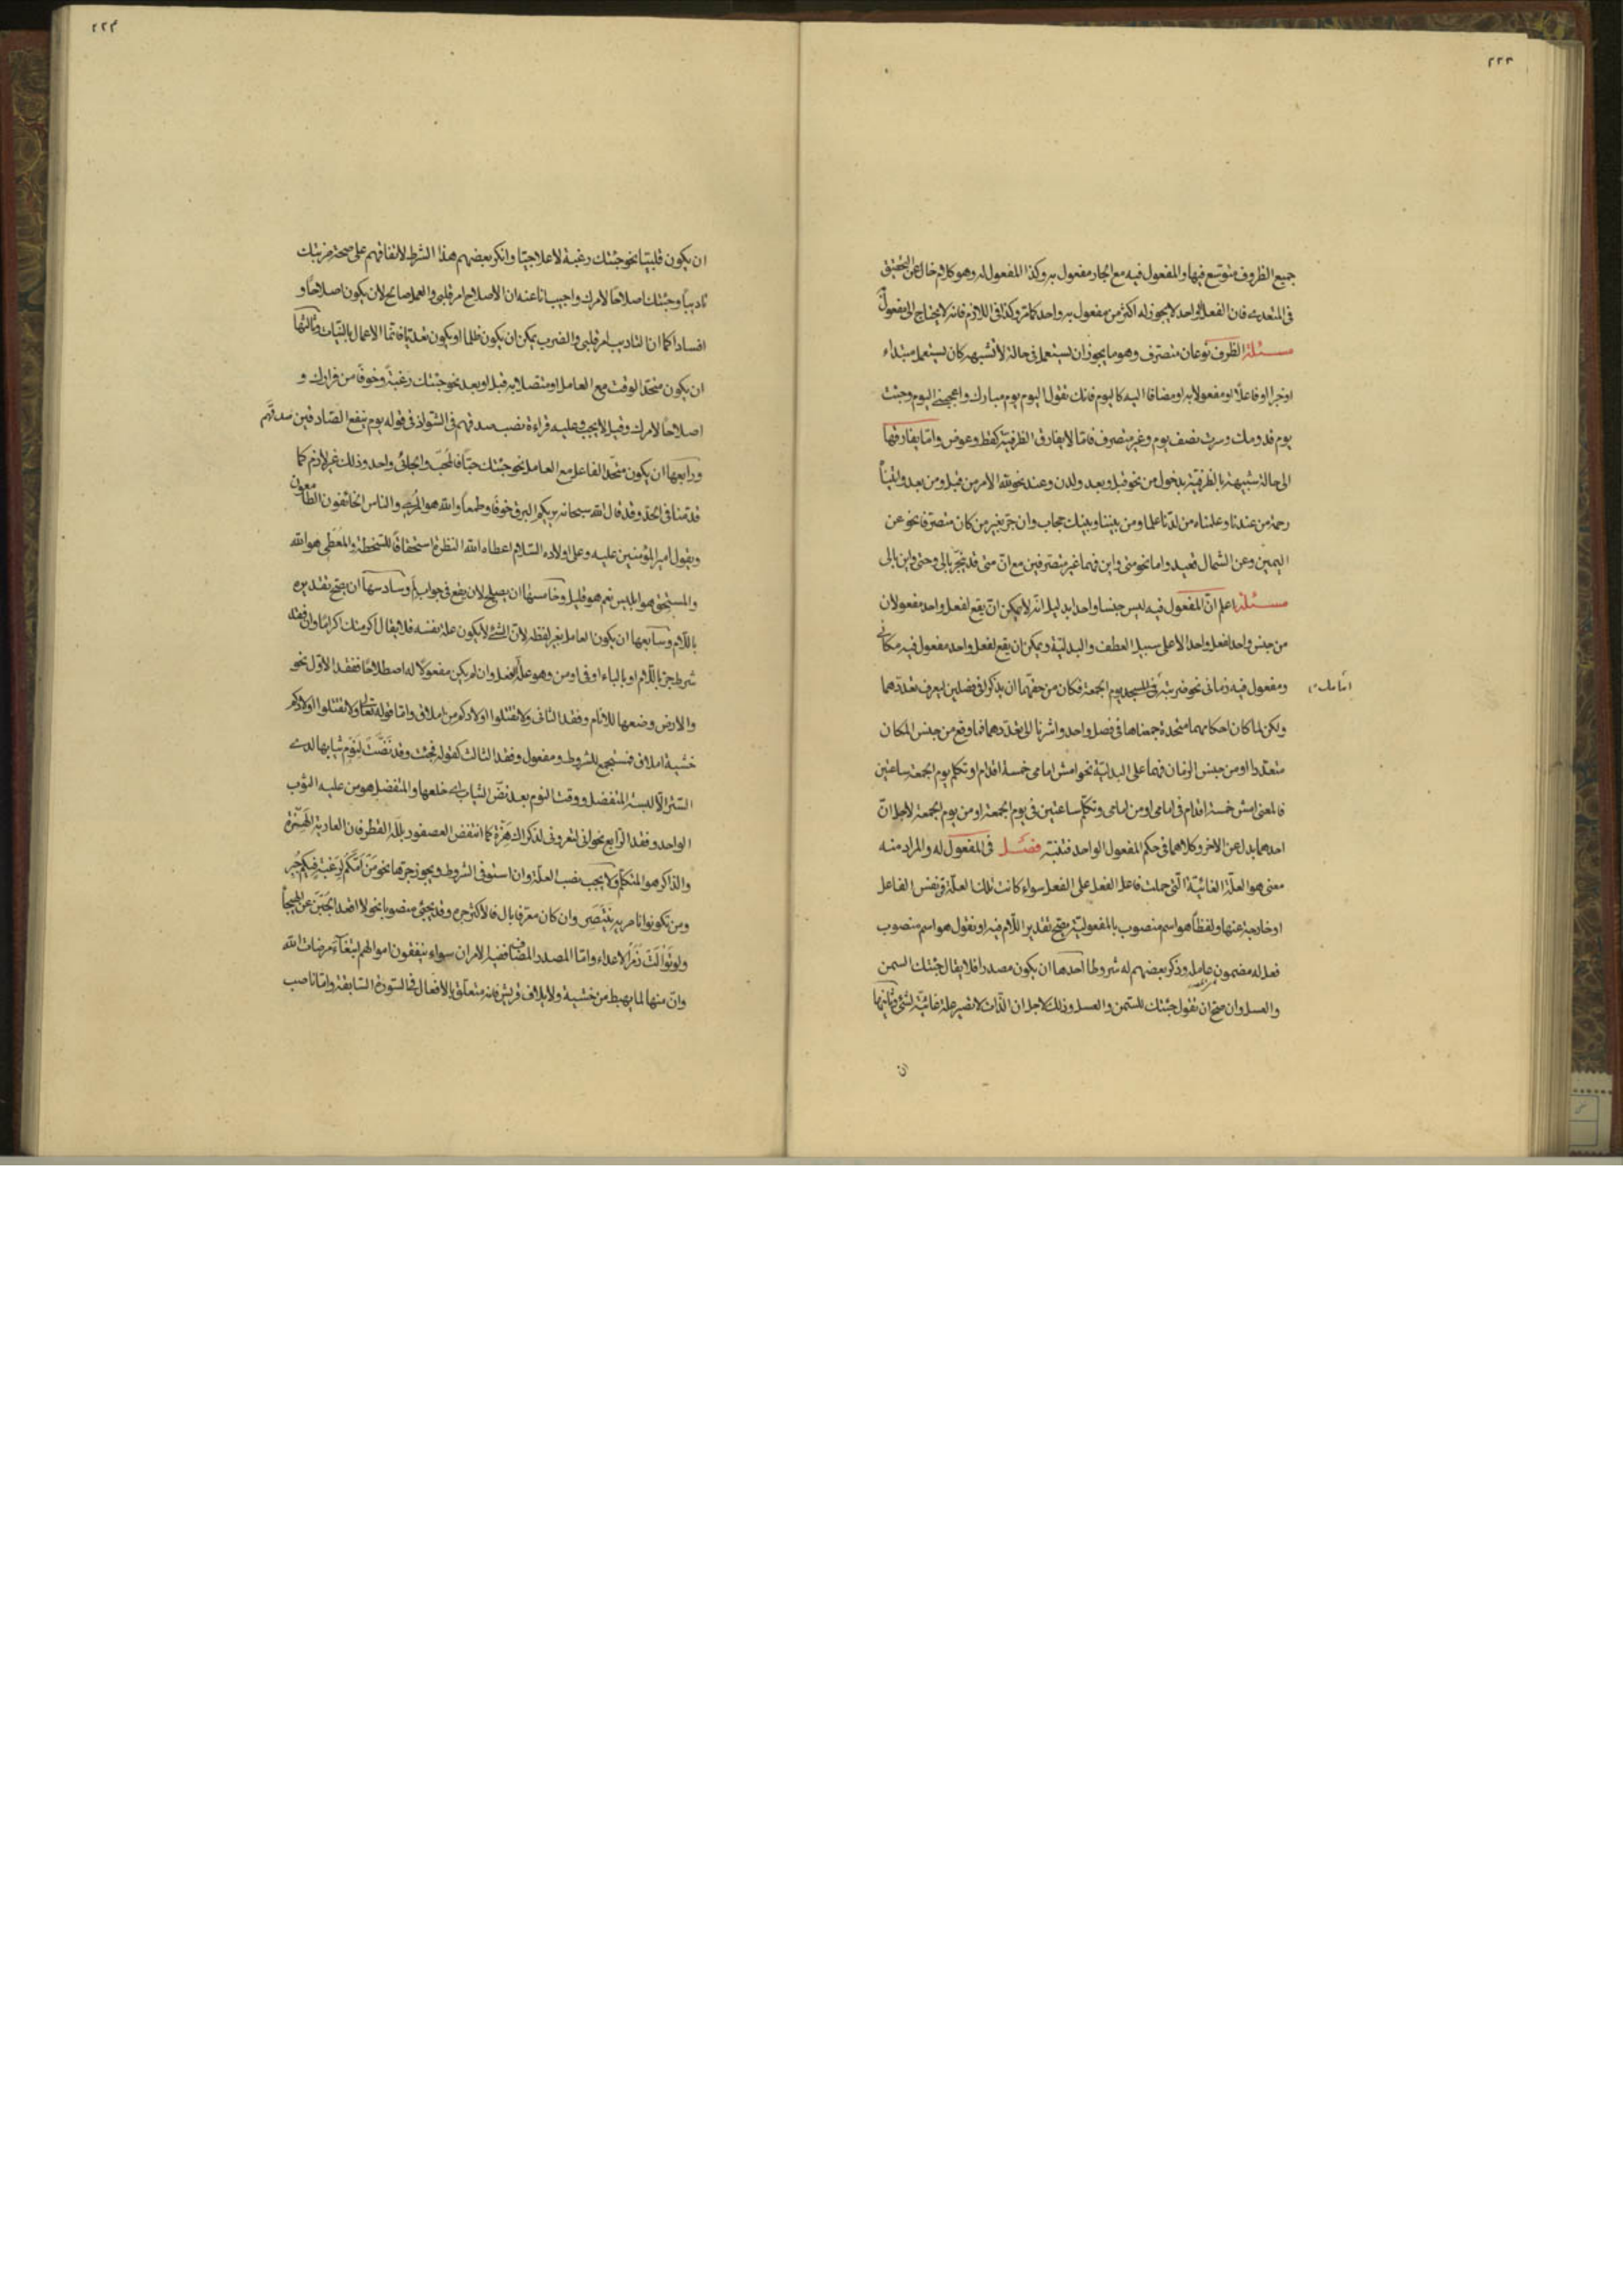 ٢٢٣
جميع الظروف متوسع فيها والمفعول فيه مع الجار مفعول به وكذا المفعول له وهو كلام خال عن التحقيق
فى المتعدى فان الفعل الواحد لا يجوز له اكثر من مفعول به واحد كما مر وكذا فى اللازم فانه لا يحتاج الى مفعول
مسئلة الظرف نوعان متصرف وهو ما يجوز ان يستعمل فى حالة لا تشبهه كان يستعمل مبتداء
او خبرا او فاعلا او مفعولا به او مضافا اليه كاليوم فانك تقول اليوم يوم مبارك واعجبنى اليوم وجئت
يوم قدومك وسرت نصف يوم وغير متصرف فاما لا يفارق الظرفية كقط وعوض واما يفارقها
الى حالة شبيهة بالظرفية بدخول من نحو قبل وبعد ولدن وعند نحو لله الامر من قبل ومن بعد واتيناه
رحمة من عندنا وعلمناه من لدنا علما ومن بيننا وبينك حجاب وان جر بغير من كان متصرفا نحو عن
اليمين وعن الشمال قعيد واما نحو متى واين فهما غير متصرفين مع ان متى قد تجر بالى وحتى واين بالى
مسئلة اعلم ان المفعول فيه ليس جنسا واحدا بدليل انه لا يمكن ان يقع لفعل واحد مفعولان
من جنس واحد لفعل واحد الا على سبيل العطف والبدلية ويمكن ان يقع لفعل واحد مفعول فيه مكانى
ومفعول فيه زمانى نحو ضربته فى المسجد يوم الجمعة فكان من حقهما ان يذكرا فى فصلين ليعرف تعددهما
ولكن لما كان احكامهما متحدة جمعناها فى فصل واحد واشرنا الى تعددهما فما وقع من جنس المكان
متعددا او من جنس الزمان فهما على البدلية نحو امش امامى خمسة اقدام او تكلم يوم الجمعة ساعتين
فالمعنى امش خمسة اقدام فى امامى او من امامى وتكلم ساعتين فى يوم الجمعة او من يوم الجمعة لاجل ان
احدهما بدل عن الاخر وكلاهما فى حكم المفعول الواحد فتنبه فصل فى المفعول له والمراد منه
معنى هو العلة الغائية التى حملت فاعل الفعل على الفعل سواء كانت تلك العلة فى نفس الفاعل
او خارجة عنها ولفظا هو اسم منصوب بالمفعولية يصح تقدير اللام فيه او نقول هو اسم منصوب
فعل له مضمون عامله وذكر بعضهم له شروطا احدها ان يكون مصدرا فلا يقال جئتك السمن
والعسل وان صح ان تقول جئتك للسمن والعسل وذلك لاجل ان الذات لا تصير علة غائية لشئ وثانيها
ان
٢٢٤
ان يكون قلبيا نحو جئتك رغبة لا علاجيا وانكر بعضهم هذا الشرط لاتفاقهم على صحة ضربتك
تاديبا وجئتك اصلاحا لامرك واجيب انا عنه ان الاصلاح امر قلبى والعمل صالح لان يكون اصلاحا و
افسادا كما ان التاديب امر قلبى والضرب يمكن ان يكون ظلما او يكون تعديا فانما الاعمال بالنيات وثالثها
ان يكون متحد الوقت مع العامل او متصلا به قبل او بعد نحو جئتك رغبة وخوفا من فرارك و
اصلاحا لامرك وقيل لا يجب وعليه قراءة نصب صدقهم فى الشواذ فى قوله يوم ينفع الصادقين صدقهم
ورابعها ان يكون متحد الفاعل مع العامل نحو جئتك حبا فالمحب والجائى واحد وذلك غير لازم كما
قدمنا فى الحد وقد قال الله سبحانه يريكم البرق خوفا وطمعا والله هو المرى والناس الخائفون الطامعون
ويقول امير المؤمنين عليه وعلى اولاده السلام اعطاه الله النظرة استحقاقا للسخطة والمعطى هو الله
والمستحق هو ابليس نعم هو قليل وخامسها ان يصلح لان يقع فى جواب لم وسادسها ان يصح تقديره
باللام وسابعها ان يكون العامل بغير لفظه لان الشئ لا يكون علة نفسه فلا يقال اكرمتك اكراما وان فقد
شرط جر باللام او بالباء او فى او من وهو علة للفعل وان لم يكن مفعولا له اصطلاحا ففقد الاول نحو
والارض وضعها للانام وفقد الثانى ولا تقتلوا اولادكم من املاق واما قوله تعالى ولا تقتلوا اولادكم
خشية املاق فمستجمع للشروط ومفعول وفقد الثالث كقوله فجئت وقد نضت لنوم ثيابها لدى
الستر الا لبسة المتفضل ووقت النوم بعد نض الثياب اى خلعها والمتفضل هو من عليه الثوب
الواحد وفقد الرابع نحو انى لتعرونى لذكراك هزة كما انتفض العصفور بلله القطر فان العارية الهزة
والذاكر هو المتكلم ولا يجب نصب العلة وان استوفى الشروط ويجوز جرها نحو من امكم لرغبة فيكم جبر
ومن تكونوا ناصريه ينتصر وان كان معرفا بال فالاكثر جره وقد يجئ منصوبا نحو لا اقعد الجبن عن الهيجاء
ولو توالت زمر الاعداء واما المصدر المضاف فيه الامران سواء ينفقون اموالهم ابتغاء مرضات الله
وان منها لما يهبط من خشية ولايلاف قريش فانه متعلق بالافعال فى السورة السابقة واما ناصب